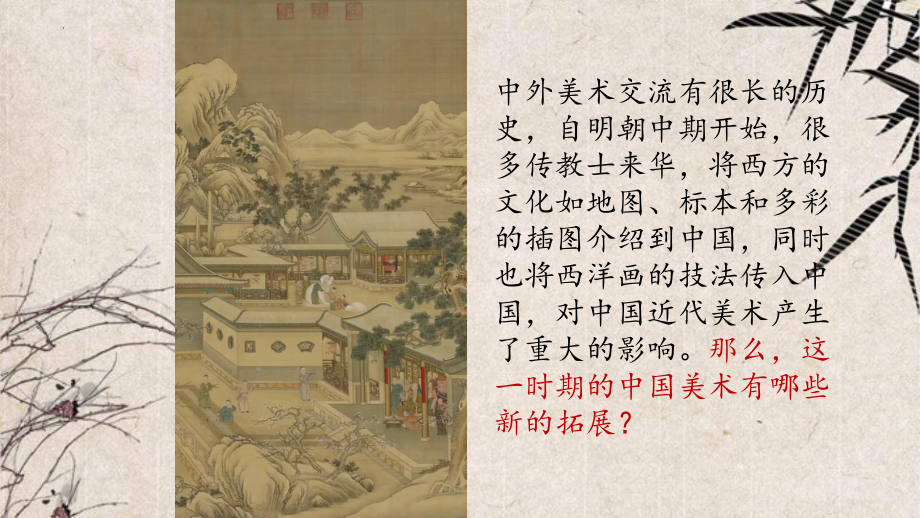 中外美术交流有很长的历
史，自明朝中期开始，很
多传教士来华，将西方的
文化如地图、标本和多彩
的插图介绍到中国，同时
也将西洋画的技法传入中
国，对中国近代美术产生
了重大的影响。那么，这
一时期的中国美术有哪些
新的拓展？